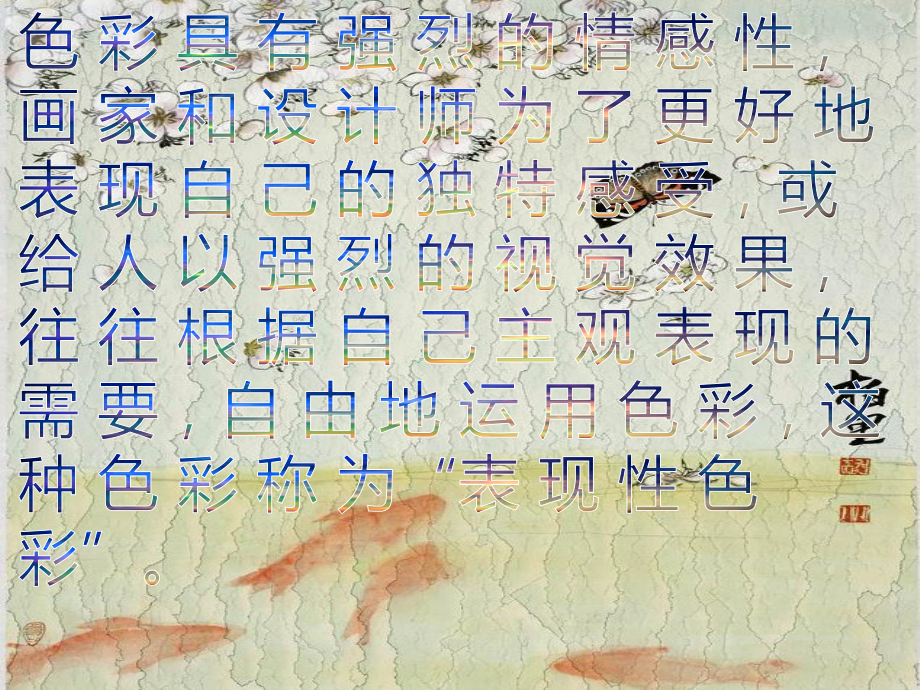 色彩具有强烈的情感性，
画家和设计师为了更好地
表现自己的独特感受，或
给人以强烈的视觉效果，
往往根据自己主观表现的
需要，自由地运用色彩，这
种色彩称为“表现性色
彩”。